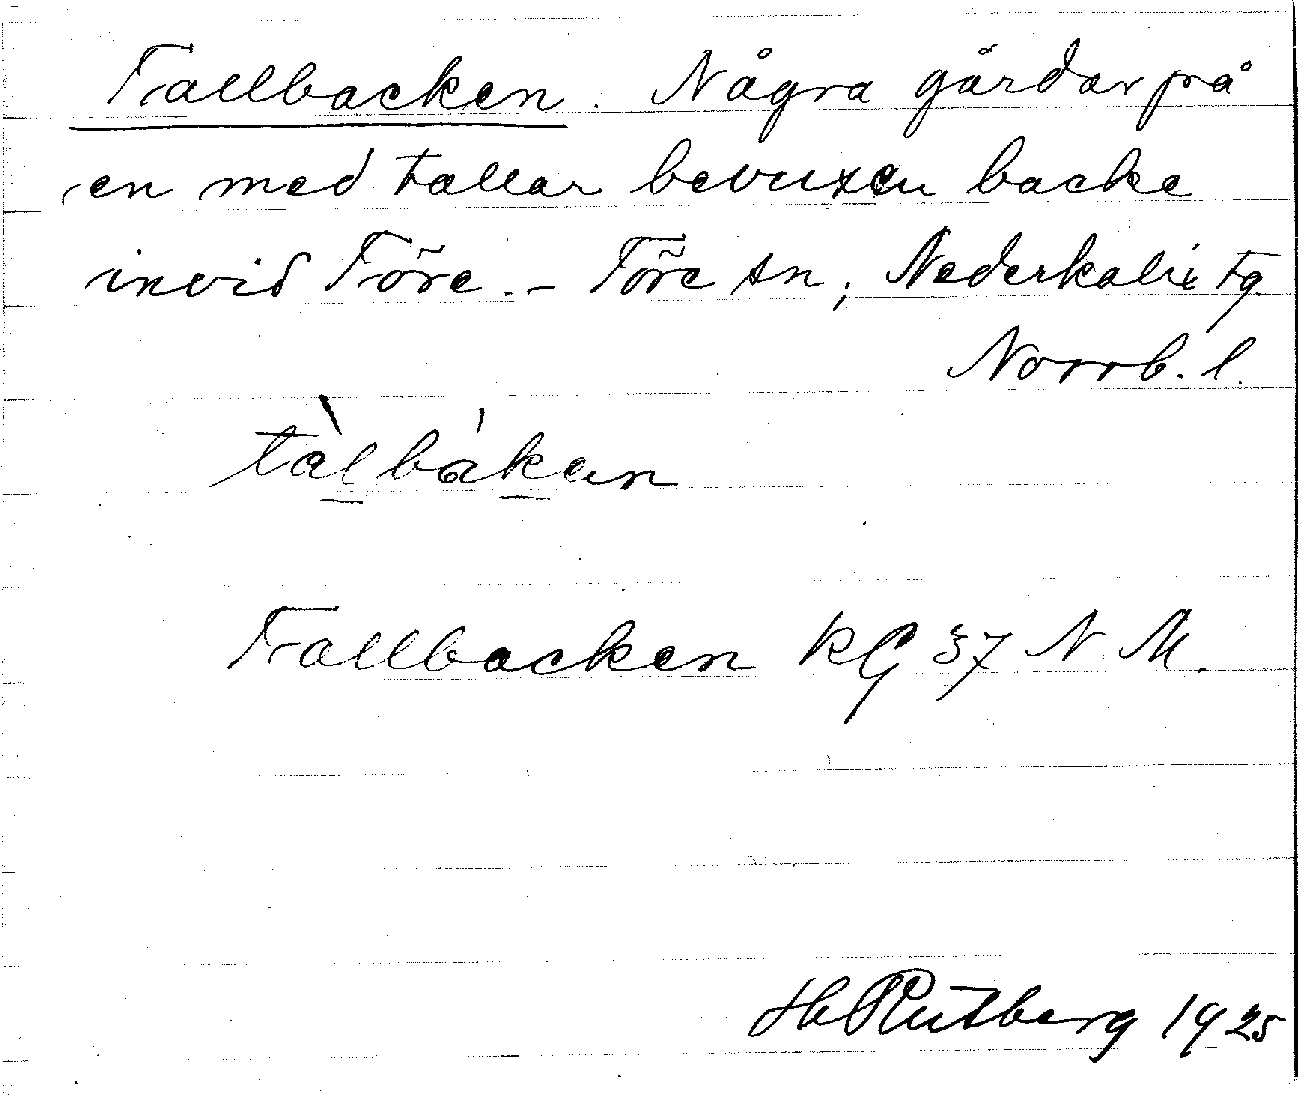 Tallbacken. Några gårdar på
en med tallar bevuxen backe
invid Töre. – Töre sn, Nederkalix tg
Norrb. l.
tàlbákan
Tallbacken KG 37 N M.
H Rutberg 1925